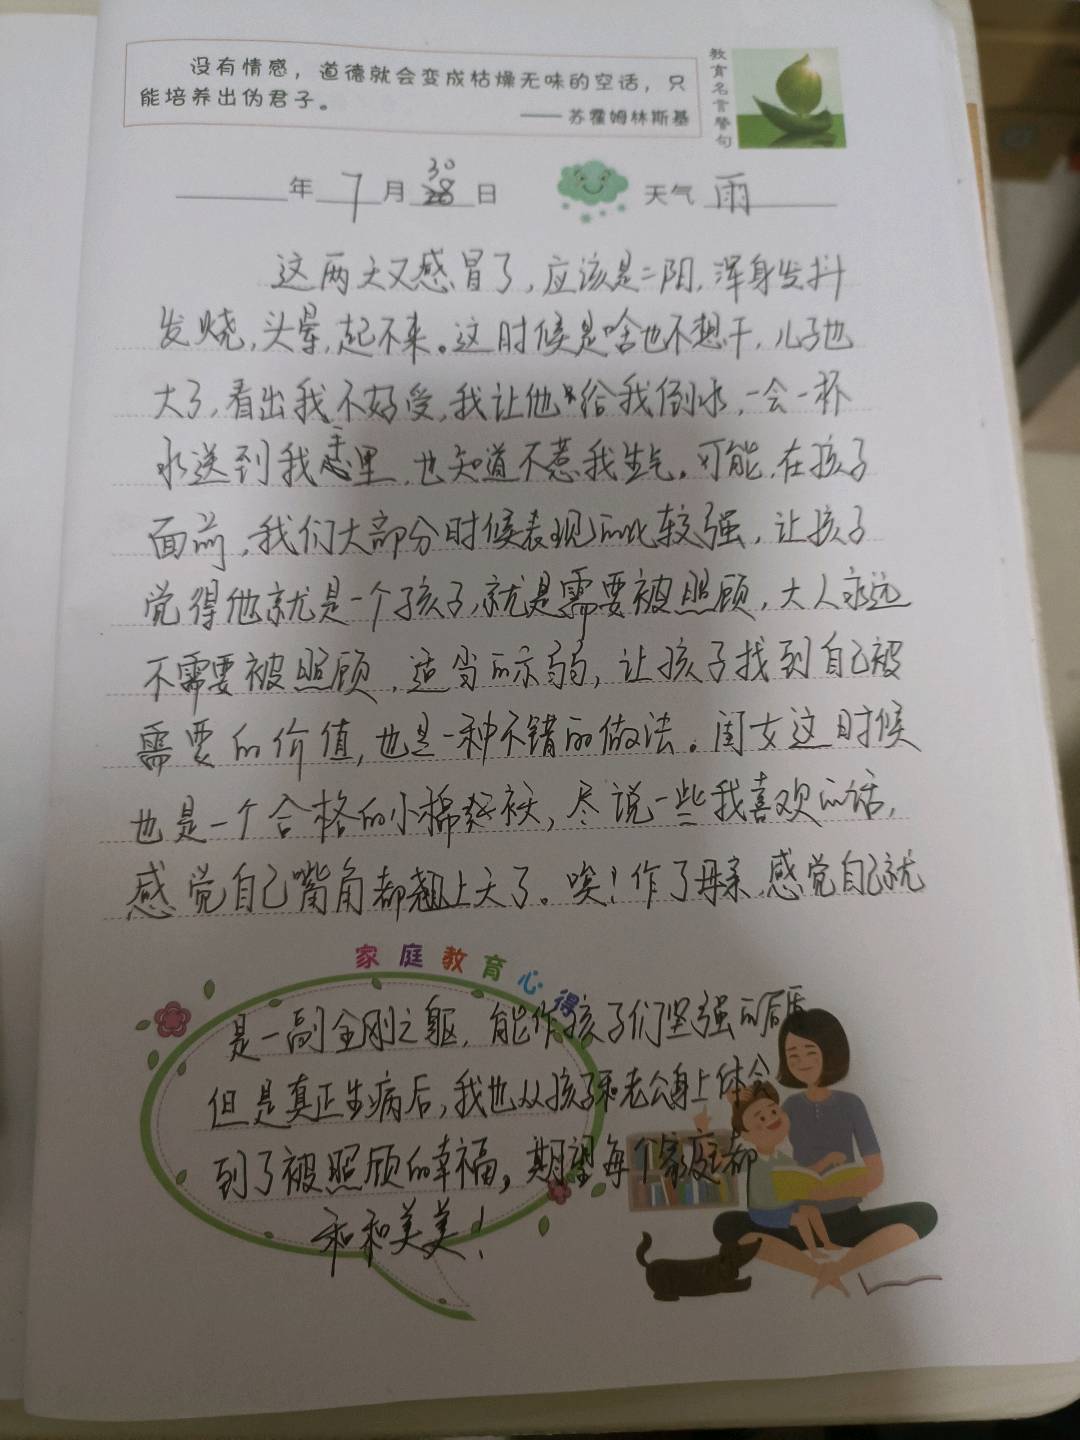 没有情感，道德就会变成枯燥无味的空话，只
能培养出伪君子。
——苏霍姆林斯基
教育名言警句
年 7 月 30 日 天气 雨
这两天又感冒了，应该是二阳，浑身发抖
发烧，头晕，起不来。这时候是啥也不想干，儿子也
大了，看出我不好受，我让他给我倒水，一会一杯
水送到我手里，也知道不惹我生气。可能，在孩子
面前，我们大部分时候表现的比较强，让孩子
觉得他就是一个孩子，就是需要被照顾，大人永远
不需要被照顾，适当的示弱，让孩子找到自己被
需要的价值，也是一种不错的做法。闺女这时候
也是一个合格的小棉袄，尽说一些我喜欢的话，
感觉自己嘴角都翘上天了。唉！作了母亲，感觉自己就
家庭教育心得
是一副金刚之躯，能作孩子们坚强的后盾
但是真正生病后，我也从孩子和老公身上体会
到了被照顾的幸福，期望每个家庭都
和和美美！